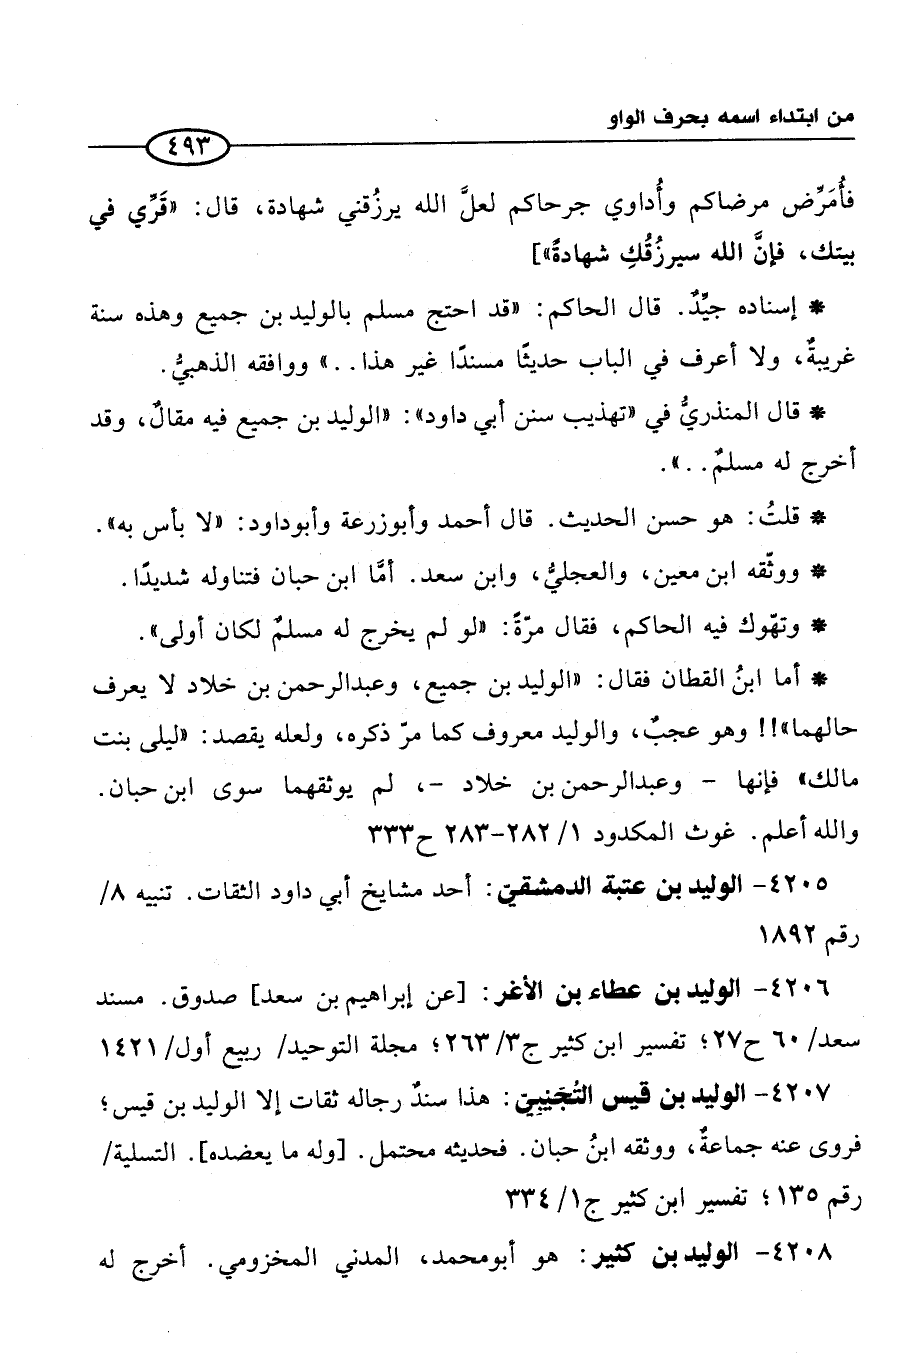 من ابتداء اسمه بحرف الواو
٤٩٣
فأُمَرِّض مرضاكم وأُداوي جرحاكم لعلَّ الله يرزُقني شهادة، قال: «قَرِّي في
بيتك، فإنَّ الله سيرزُقُكِ شهادةً»]
* إسناده جيِّدٌ. قال الحاكم: «قد احتج مسلم بالوليد بن جميع وهذه سنة
غريبةٌ، ولا أعرف في الباب حديثًا مسندًا غير هذا..» ووافقه الذهبيُّ.
* قال المنذريُّ في «تهذيب سنن أبي داود»: «الوليد بن جميع فيه مقالٌ، وقد
أخرج له مسلمٌ..».
* قلتُ: هو حسن الحديث. قال أحمد وأبوزرعة وأبوداود: «لا بأس به».
* ووثّقه ابن معين، والعجليُّ، وابن سعد. أمَّا ابن حبان فتناوله شديدًا.
* وتهّوك فيه الحاكم، فقال مرّةً: «لو لم يخرج له مسلمٌ لكان أولى».
* أما ابنُ القطان فقال: «الوليد بن جميع، وعبدالرحمن بن خلاد لا يعرف
حالهما»!! وهو عجبٌ، والوليد معروف كما مرّ ذكره، ولعله يقصد: «ليلى بنت
مالك» فإنها - وعبدالرحمن بن خلاد -، لم يوثقهما سوى ابن حبان.
والله أعلم. غوث المكدود ١/ ٢٨٢-٢٨٣ ح٣٣٣
٤٢٠٥- الوليد بن عتبة الدمشقيّ: أحد مشايخ أبي داود الثقات. تنبيه ٨/
رقم ١٨٩٢
٤٢٠٦- الوليد بن عطاء بن الأغر: [عن إبراهيم بن سعد] صدوق. مسند
سعد/ ٦٠ ح٢٧؛ تفسير ابن كثير ج٣/ ٢٦٣؛ مجلة التوحيد/ ربيع أول/ ١٤٢١
٤٢٠٧- الوليد بن قيس التُجَنِبِيّ: هذا سندٌ رجاله ثقات إلا الوليد بن قيس؛
فروى عنه جماعةٌ، ووثقه ابنُ حبان. فحديثه محتمل. [وله ما يعضده]. التسلية/
رقم ١٣٥؛ تفسير ابن كثير ج١/ ٣٣٤
٤٢٠٨- الوليد بن كثير: هو أبومحمد، المدني المخزومي. أخرج له